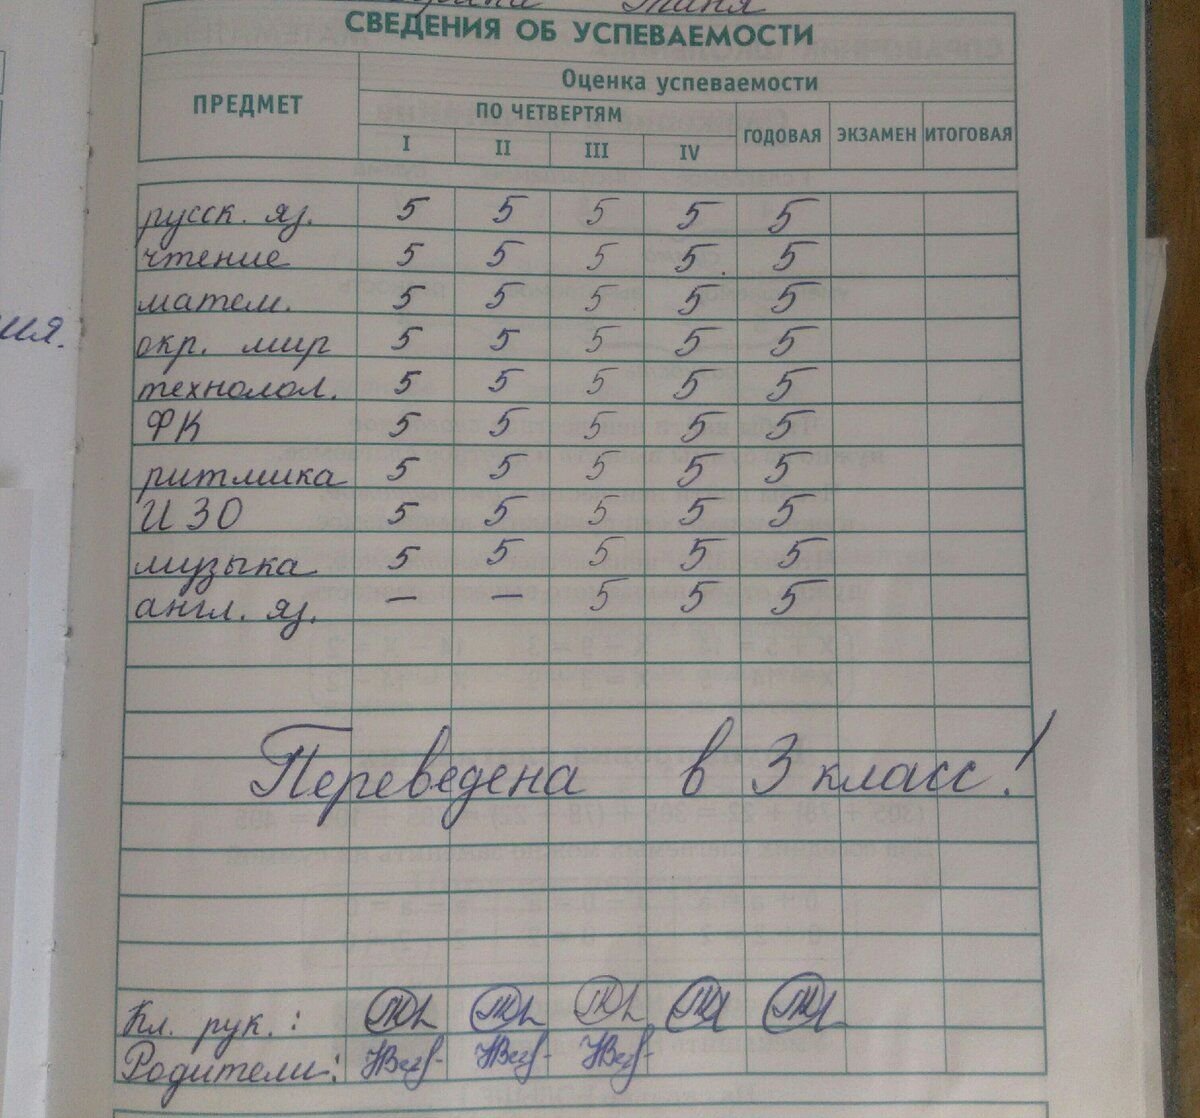 Таня
СВЕДЕНИЯ ОБ УСПЕВАЕМОСТИ
ПРЕДМЕТ
Оценка успеваемости
ПО ЧЕТВЕРТЯМ
I II III IV ГОДОВАЯ ЭКЗАМЕН ИТОГОВАЯ
русск. яз. 5 5 5 5 5
чтение 5 5 5 5 5
матем. 5 5 5 5 5
окр. мир 5 5 5 5 5
технолол. 5 5 5 5 5
ФК 5 5 5 5 5
ритмика 5 5 5 5 5
ИЗО 5 5 5 5 5
музыка 5 5 5 5 5
англ. яз. — — 5 5 5
Переведена в 3 класс!
Кл. рук.:
Родители: